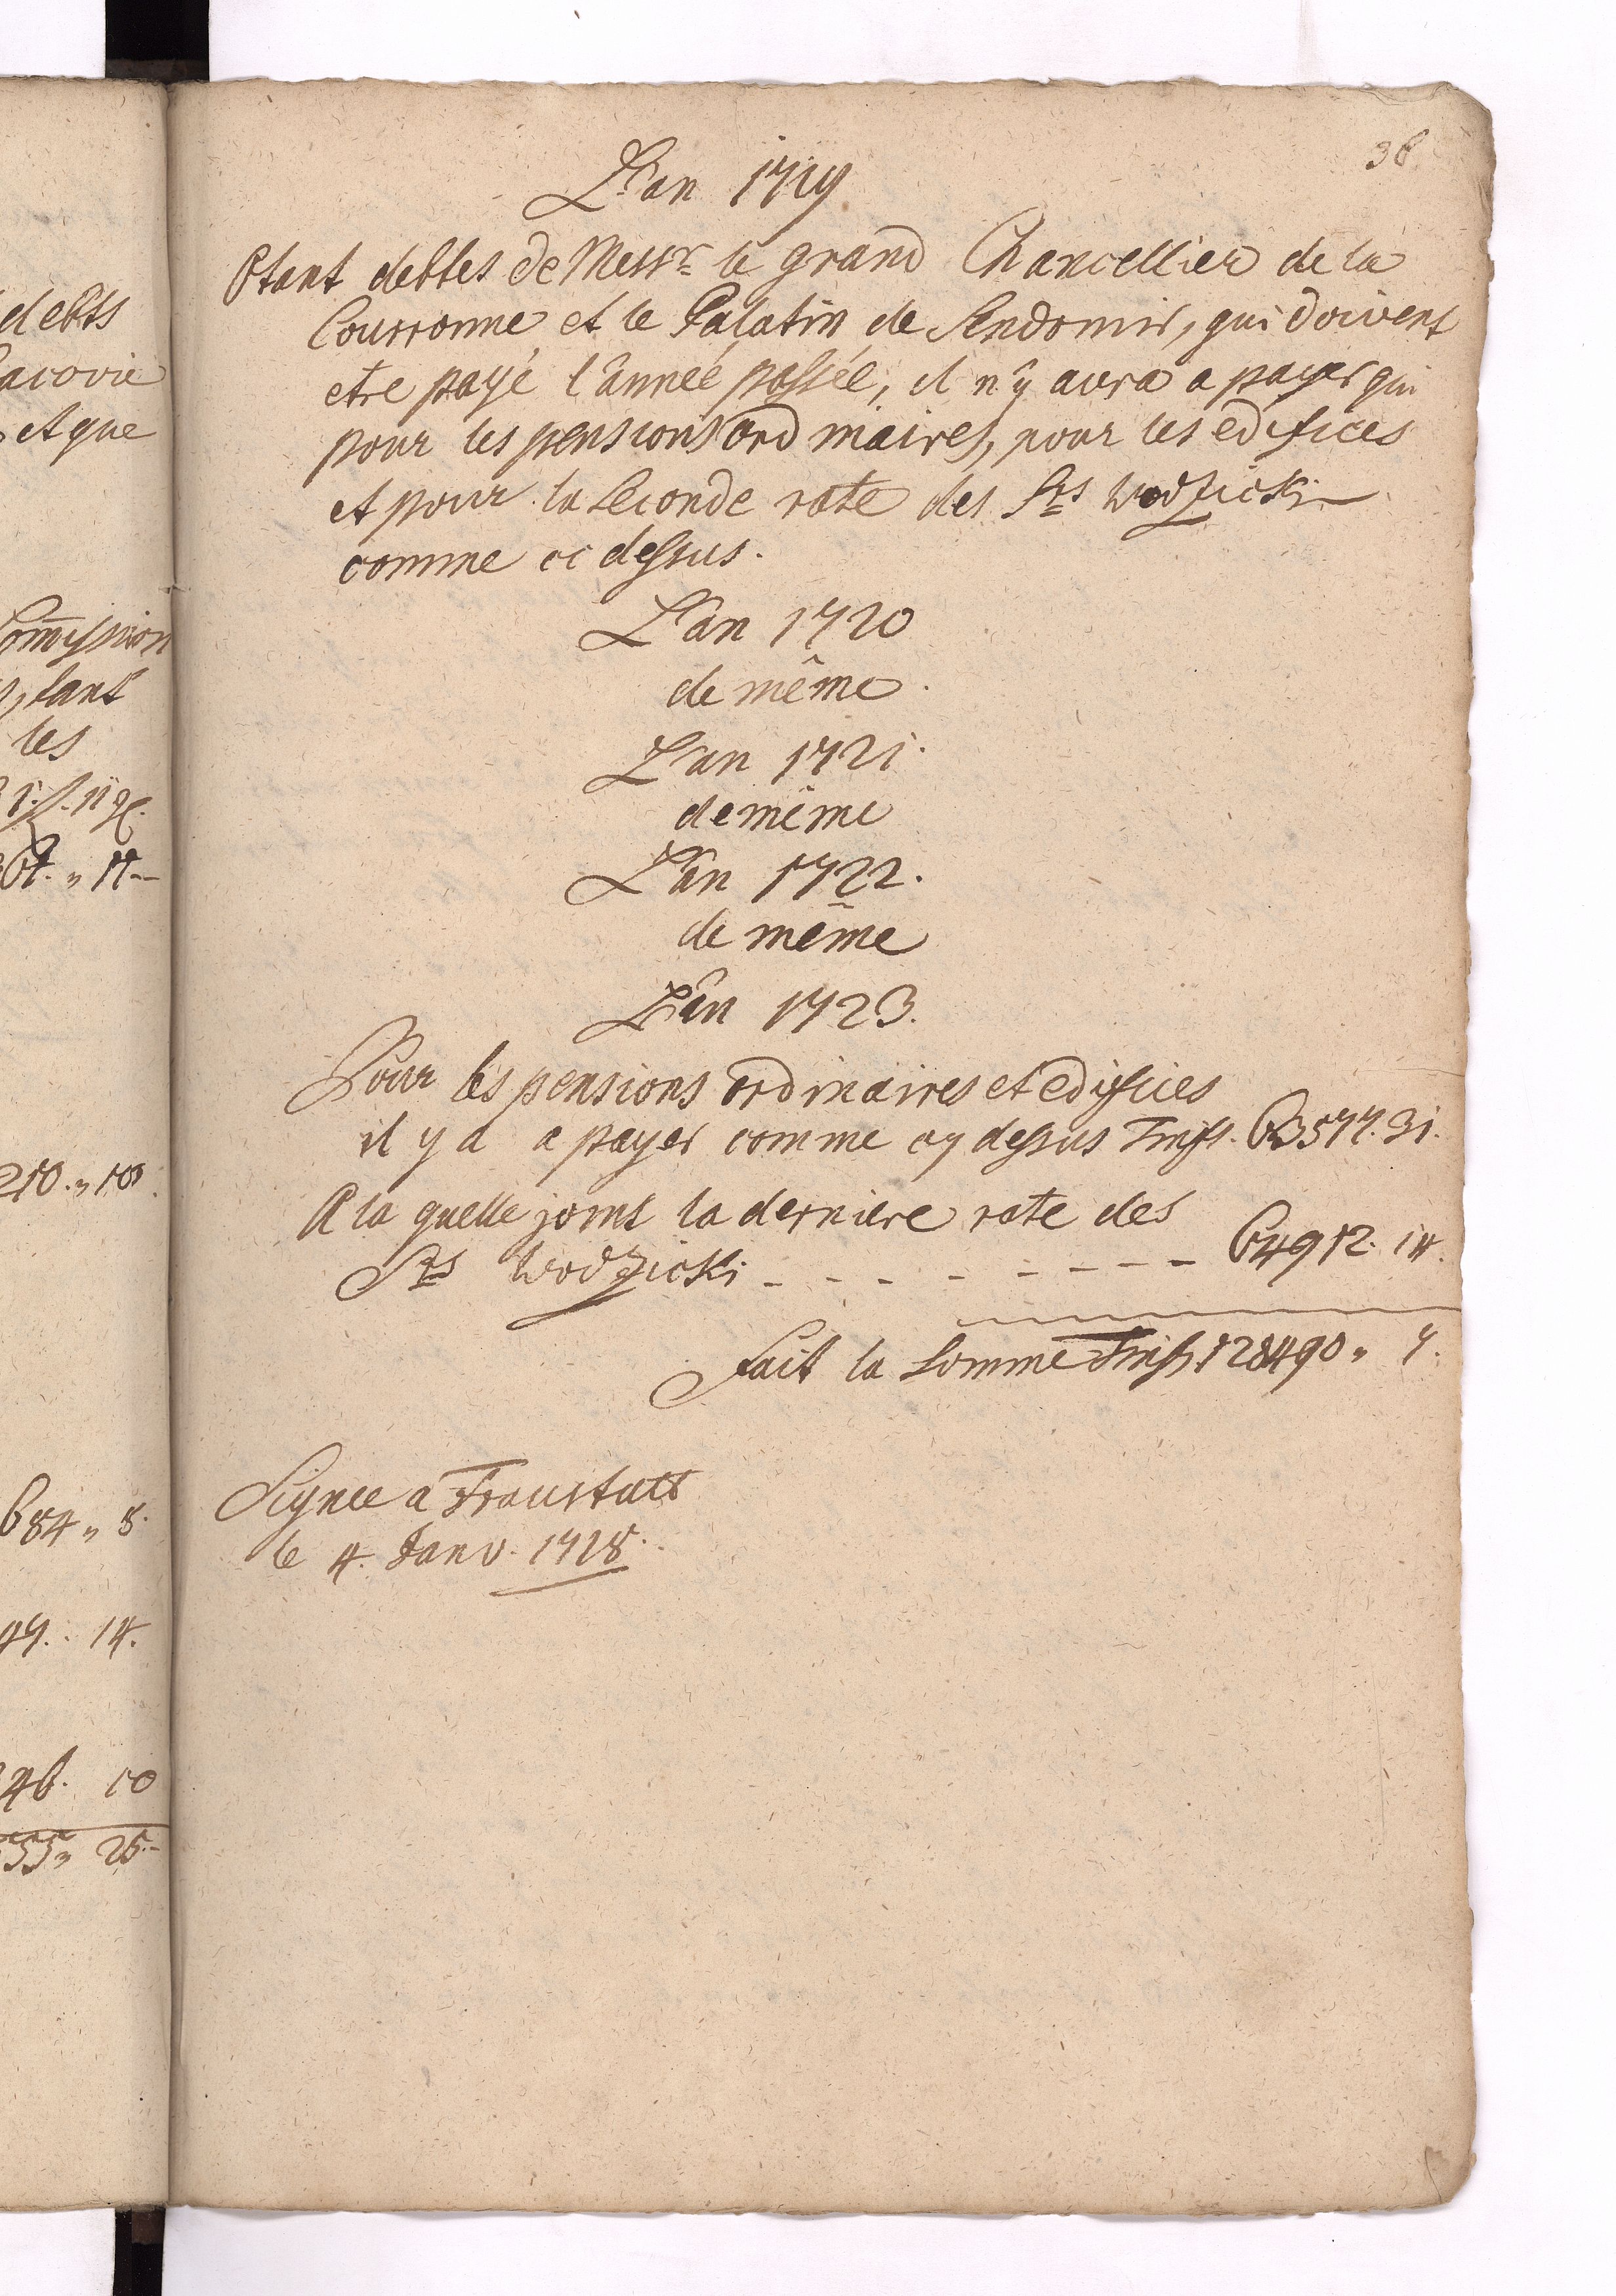 debts
acovie
et que
Commission
, tant
les
210. „ 10
684 „ 8.
47. . 14.
46. 10
55 „ 25.-
36
L'an 1719
Otant debtes de Messrs le grand Chancellier de la
Courronne et le Palatin de Sendomir, qui doivent
etre payé l'année passée, il n'y aura a payer qui
pour les pensions ordinaires, pour les edifices
et pour la Seconde rate des Srs Wodzicki
comme ci dessus.
L'an 1720
de même.
L'an 1721.
de même
L'an 1722.
de même
L'an 1723.
Pour les pensions ordinaires et edifices
il y a a payer comme cy dessus Timpf. 63577. 31.
A la quelle joint la derniere rate des
Srs Wodzicki - - - - - - - - - 64912. 14.
Fait la Somme Timpf. 128490 „ 7.
Signée a Fraustatt
le 4. Janv. 1718.